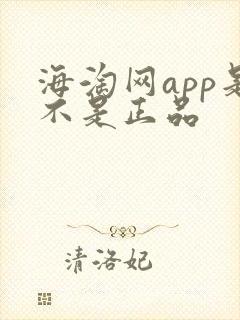 海淘网app是
不是正品
清洛妃